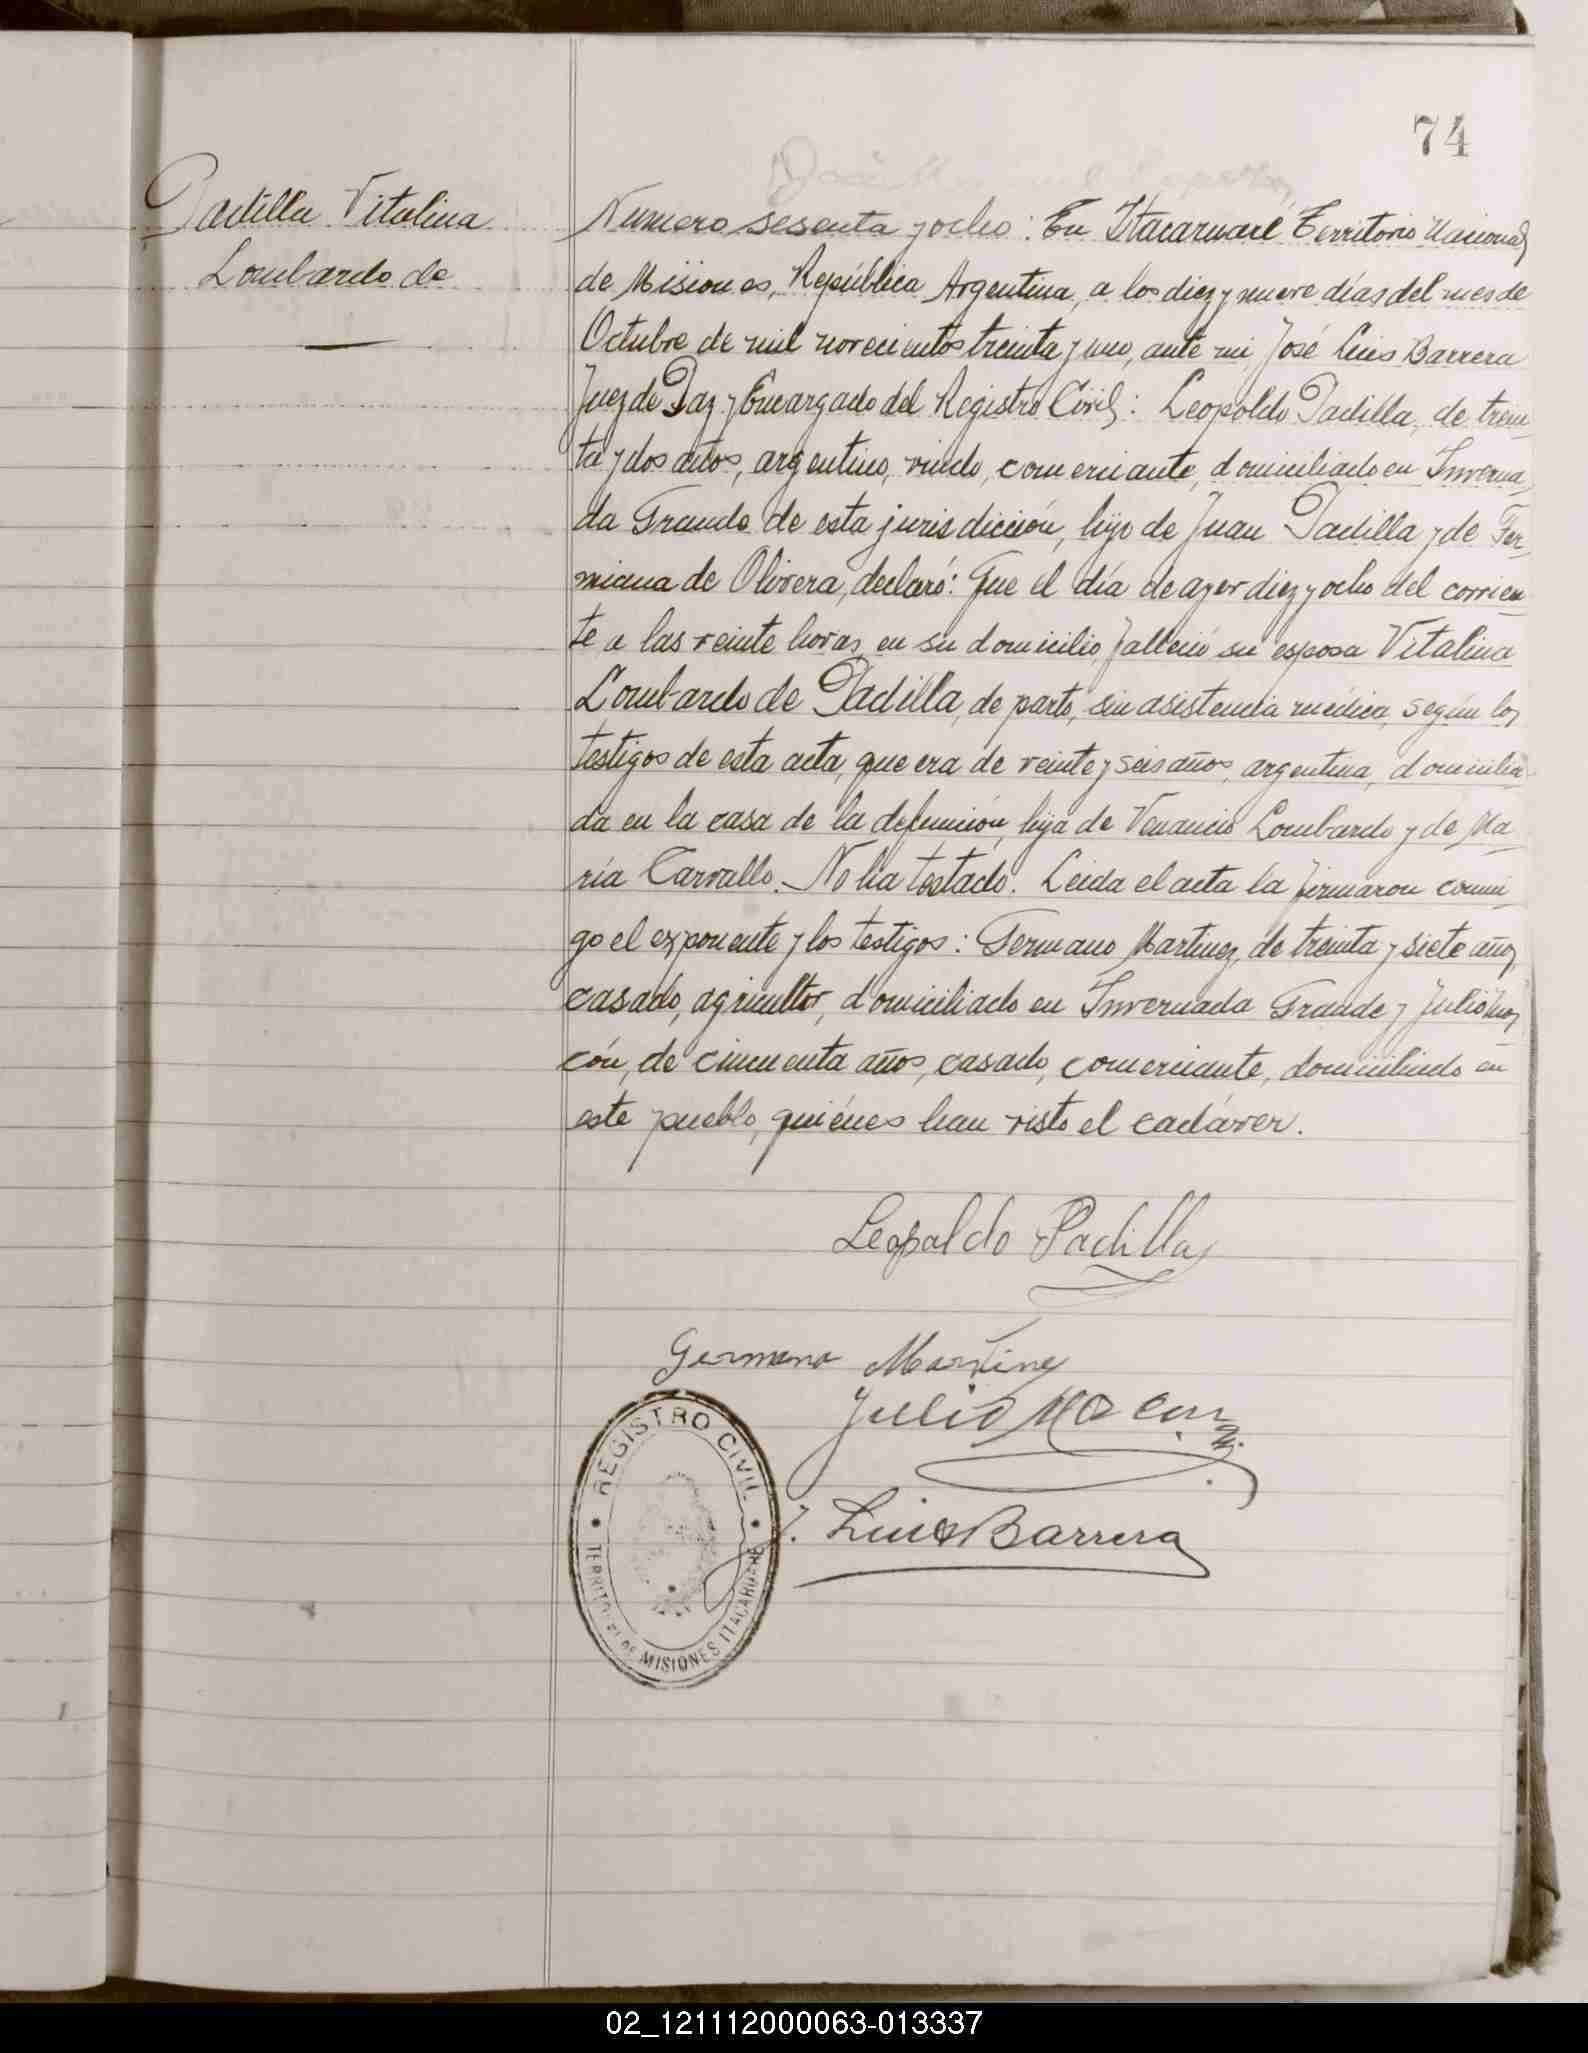 74
Padilla Vitalina
Lombardo de
Numero sesenta y ocho: En Itacaruaré Territorio Nacional
de Misiones, República Argentina, a los diez y nueve días del mes de
Octubre de mil novecientos treinta y uno, ante mi, José Luis Barrera
Juez de Paz y Encargado del Registro Civil: Leopoldo Padilla, de trein-
ta y dos años, argentino, viudo, comerciante, domiciliado en Inverna-
da Grande de esta jurisdicción, hijo de Juan Padilla y de Fer-
miana de Olivera, declaró: Que el día de ayer diez y ocho del corrien-
te a las veinte horas, en su domicilio, falleció su esposa Vitalina
Lombardo de Padilla, de parto, sin asistencia médica, según los
testigos de esta acta, que era de veinte y seis años, argentina, domicilia-
da en la casa de la defunción, hija de Venancio Lombardo y de Ma-
ría Carvallo. No ha testado. Leida el acta la firmaron conmi-
go el exponente y los testigos: Germano Martinez, de treinta y siete años,
casado, agricultor, domiciliado en Invernada Grande y Julio Mon-
cón, de cincuenta años, casado, comerciante, domiciliado en
este pueblo, quiénes han visto el cadáver.
Leopoldo Padilla
Germano Martinez
Julio
J. Luis Barrera
REGISTRO CIVIL
TERRITORIO DE MISIONES ITACARUARE
02_121112000063-013337